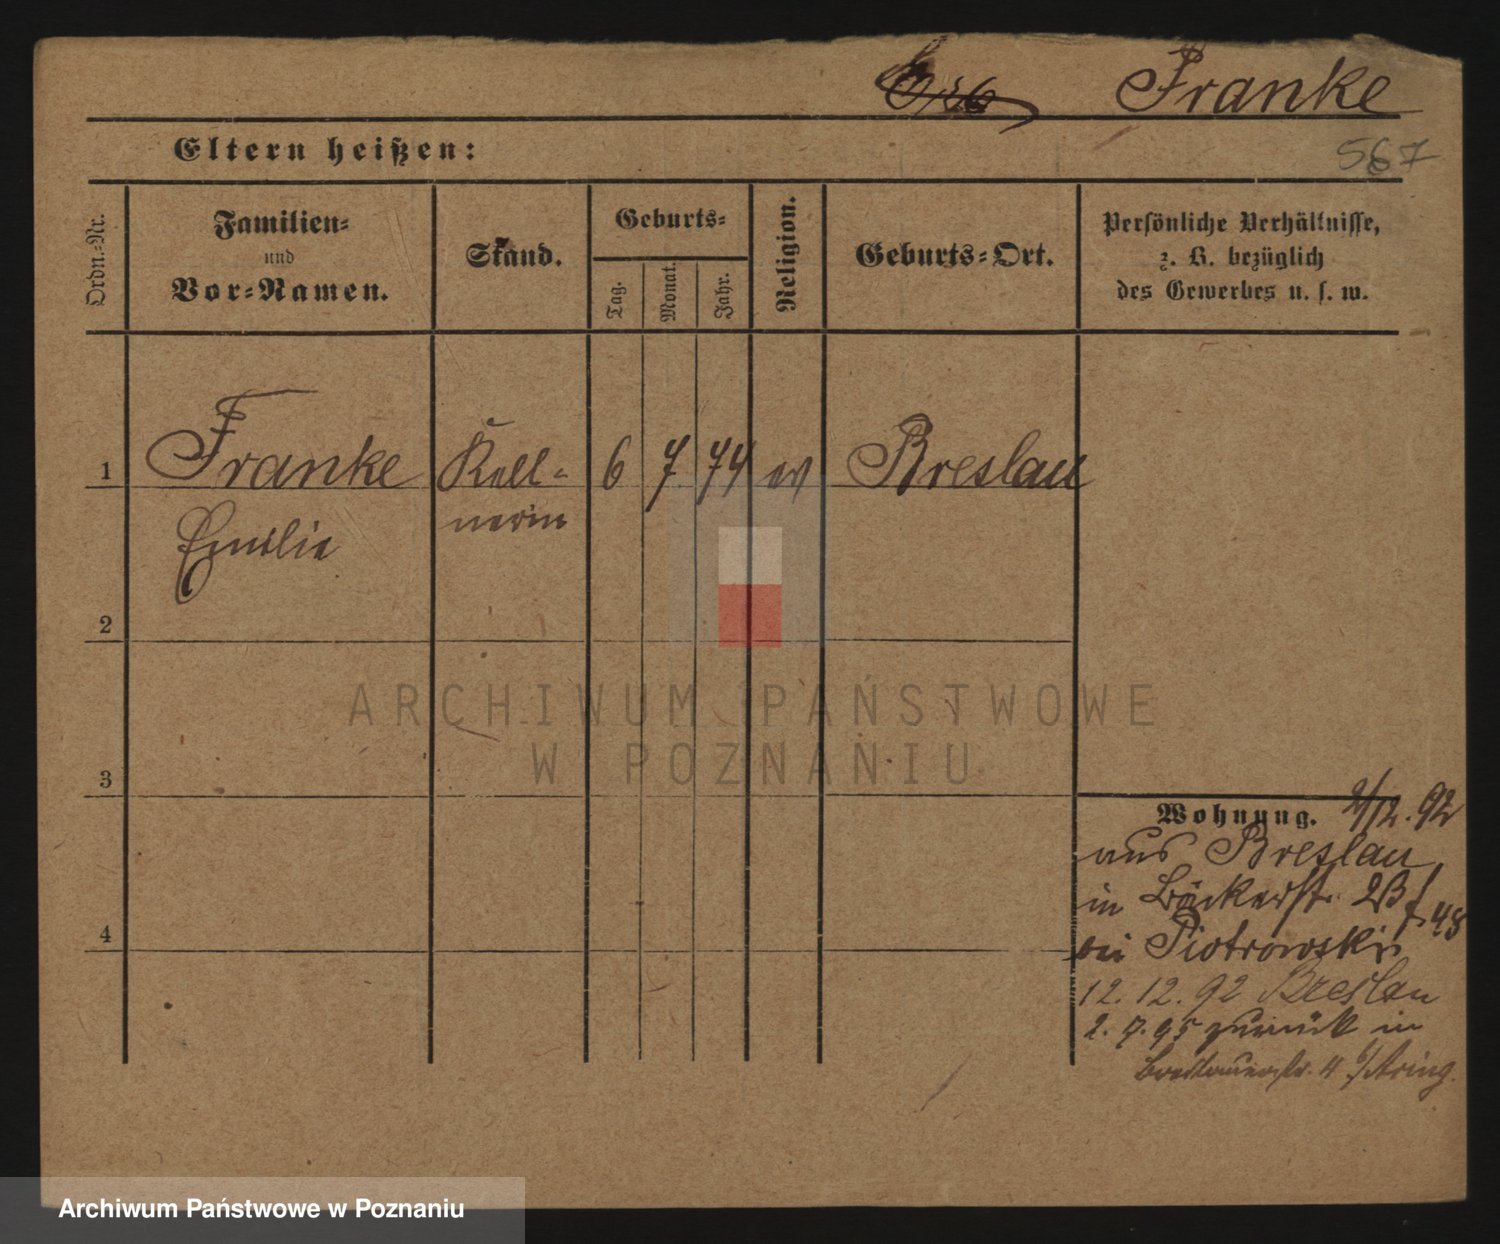 Franke
Eltern heißen:
567
Ordn.-Nr.
Familien-
und
Vor-Namen.
Stand.
Geburts-
Tag.
Monat.
Jahr.
Religion.
Geburts-Ort.
Persönliche Verhältnisse,
z. B. bezüglich
des Gewerbes u. s. w.
1 Franke Kell- 6 7 74 ev Breslau
Emilie nerin
2
ARCHIWUM PAŃSTWOWE
W POZNANIU
3
Wohnung. 2/12.92
aus Breslau
in Bäckerstr. 2B
bei Piotrowski
12.12.92 Breslau
2.7.95 zurück in
Breslauerstr. 4
4
Archiwum Państwowe w Poznaniu